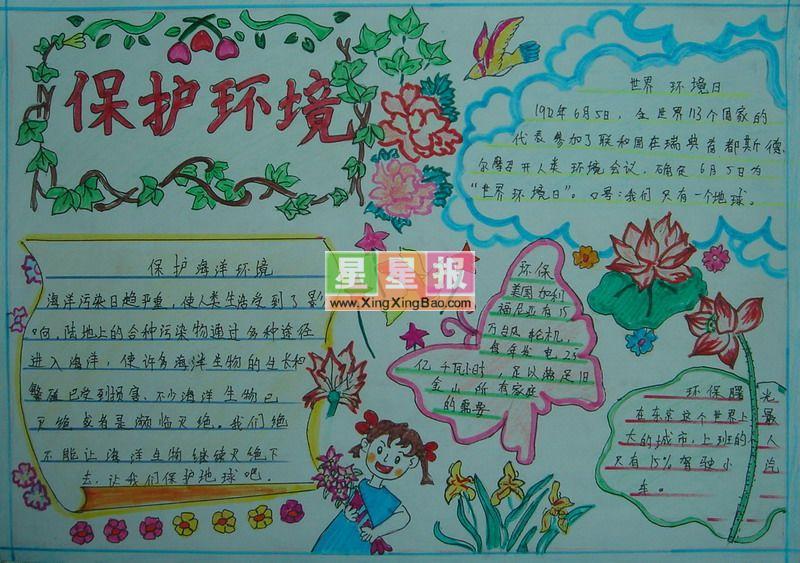 保护环境
世界 环境日
1972年6月5日，全世界113个国家的
代表参加了联和国在瑞典首都斯德
尔摩召开人类环境会议。确定6月5日为
“世界环境日”。口号：我们只有一个地球。
星星报
www.XingXingBao.com
保护海洋环境
海洋污染日趋严重，使人类生活受到了影
响，陆地上的各种污染物通过多种途径
进入海洋，使许多海洋生物的生长和
繁殖已受到损害，不少海洋生物已
灭绝或者是濒临灭绝。我们绝
不能让海洋生物继续灭绝下
去，让我们保护地球吧。
环保
美国加利
福尼亚有15
万台风轮机，
每年发电25
亿千瓦小时，足以满足旧
金山所有家庭
的需要
环保曙光
在东京这个世界上最
大的城市，上班的人
只有15%驾驶小汽
车。